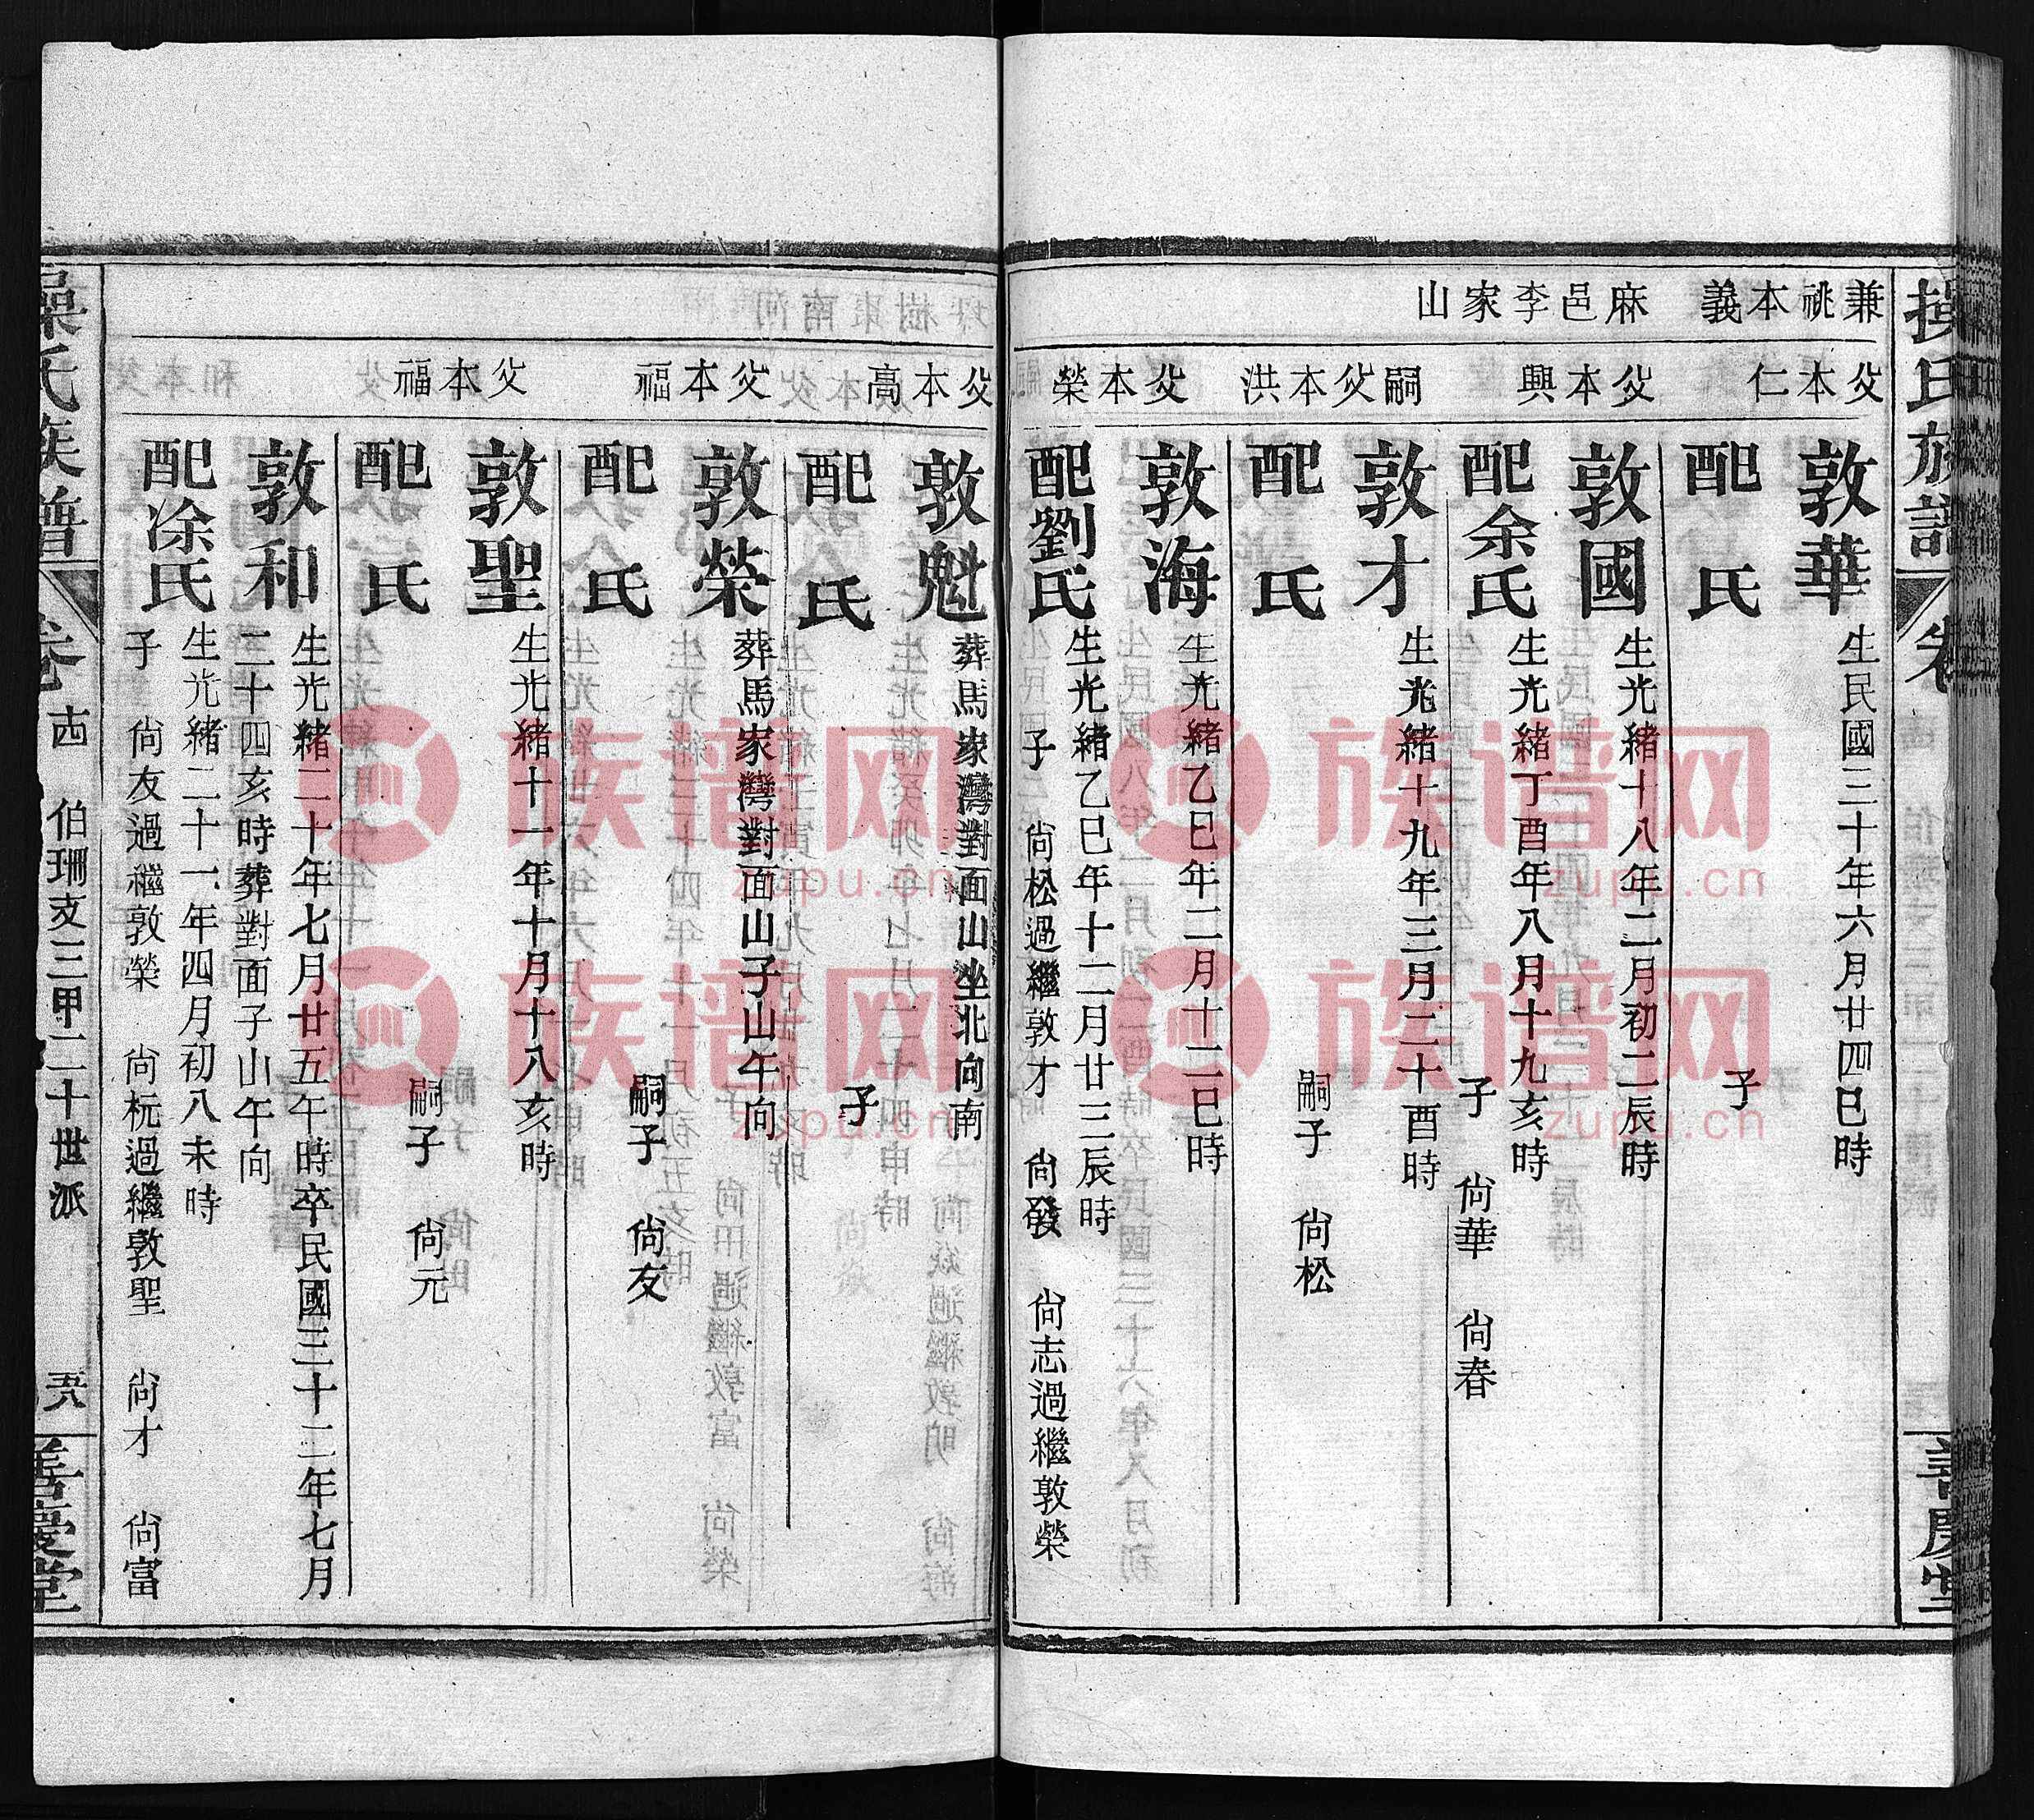 操氏族譜
卷
善慶堂
兼祧本義
麻邑李家山
父本仁
敦華
生民國三十年六月廿四巳時
配 氏
子
父本興
敦國
生光緒十八年二月初二辰時
配余氏
生光緒丁酉年八月十九亥時
子 尙華 尙春
嗣父本洪
敦才
生光緒十九年三月二十酉時
配 氏
嗣子 尙松
父本榮
敦海
生光緒乙巳年二月十二巳時
配劉氏
生光緒乙巳年十二月廿三辰時
子 尙松過繼敦才 尙發 尙志過繼敦榮
父本高
敦魁
葬馬家灣對面山坐北向南
配 氏
子
父本福
敦榮
葬馬家灣對面山子山午向
配 氏
嗣子 尙友
父本福
敦聖
生光緒十一年十月十八亥時
配 氏
嗣子 尙元
敦和
生光緒二十年七月廿五午時卒民國三十二年七月
二十四亥時葬對面子山午向
配涂氏
生光緒二十一年四月初八未時
子 尙友過繼敦榮 尙杬過繼敦聖 尙才 尙富
操氏族譜
卷 伯珊支三甲二十世派
善慶堂
族谱网
zupu.cn
族谱网
zupu.cn
族谱网
zupu.cn
族谱网
zupu.cn